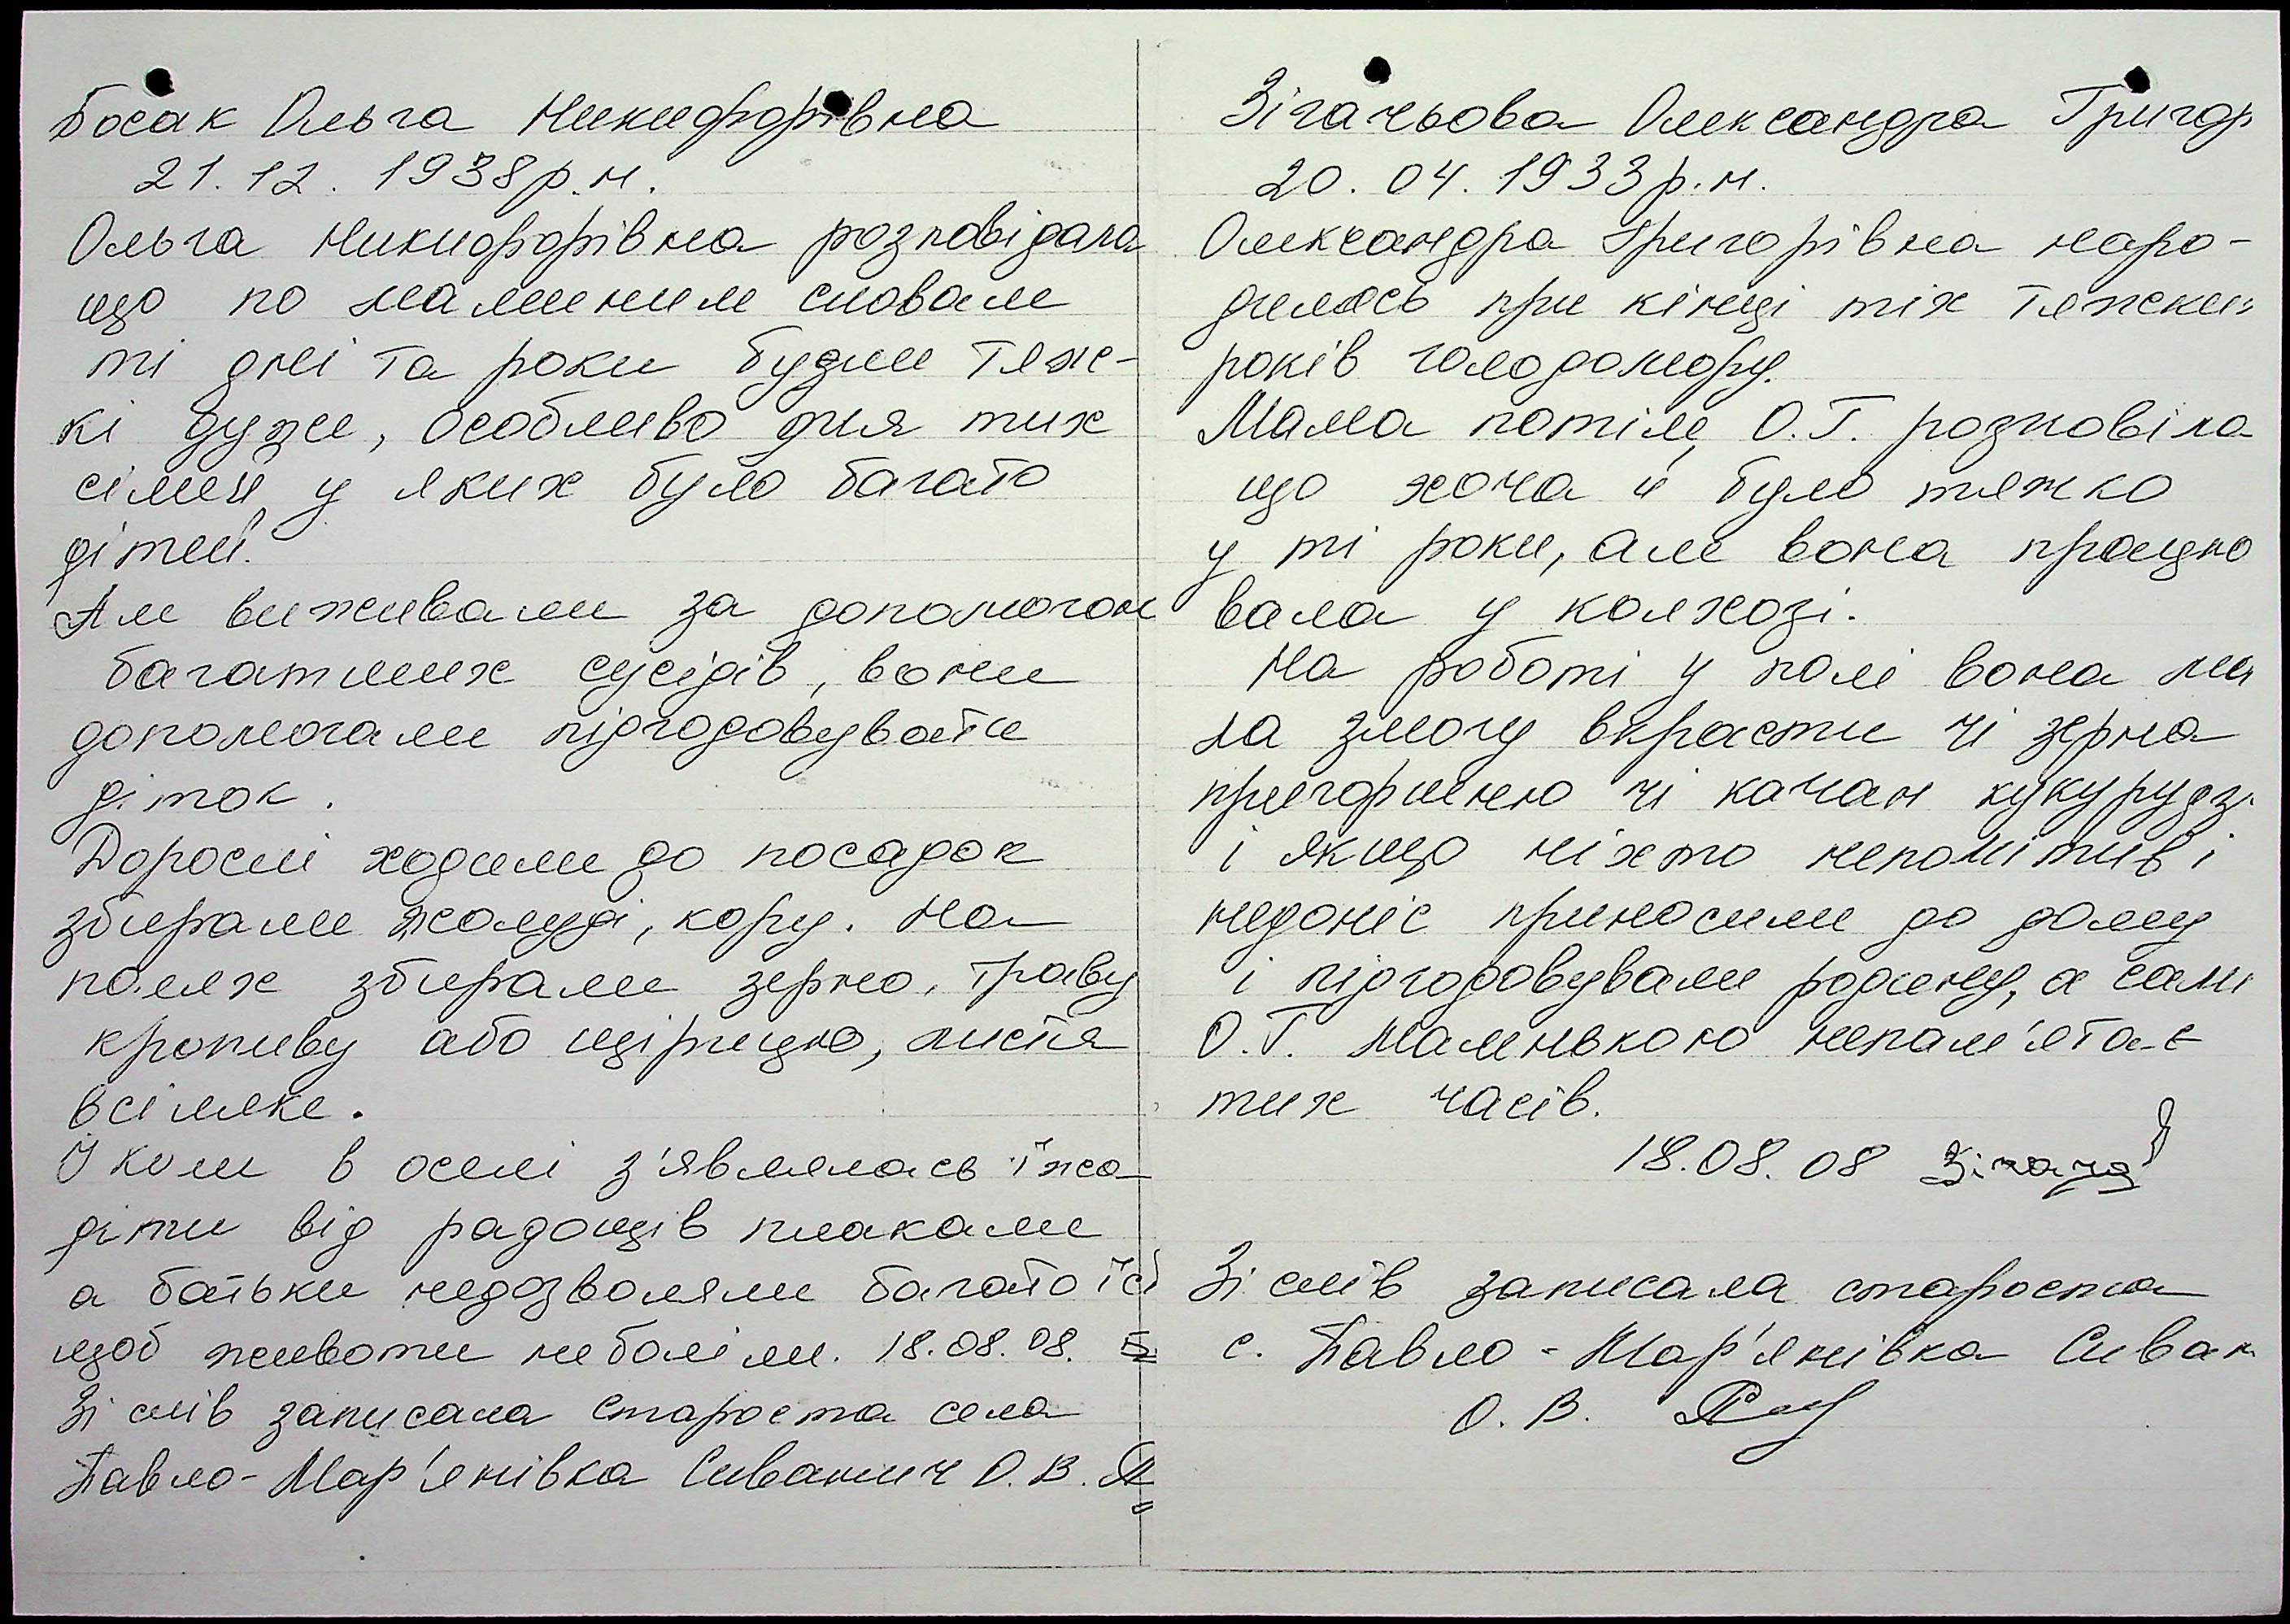 Босак Ольга Никифорівна
21.12.1938р.н.
Ольга Никифорівна розповідала
що по маминим словам
ті дні та роки були теж-
кі дуже, особливо для тих
сімей, у яких було багато
дітей.
Але виживали за допомогою
багатших сусідів, вони
допомогали підгодовувати
діток.
Дорослі ходили до посадок
збирали жолуді, кору. На
полях збирали зерно, траву
кропиву або щірицю, листя
всіляке.
І коли в оселі з'являлась їжа
діти від радощів плакали
а батьки недозволяли багато їсі
щоб животи не боліли. 18.08.08. Б
Зі слів записала староста села
Павло-Мар'янівка Сиванич О.В.
Зігачьова Олександра Григор
20.04.1933р.н.
Олександра Григорівна наро-
дилась при кінці тіх тяжких
років голодомору.
Мама потім, О.Г. розповіла
що хоча й було тяжко
у ті роки, але вона працю
вала у колхозі.
На роботі у полі вона ма
ла змогу вкрасти чі зерна
пригоршнею чі качан кукурудз
і якщо ніхто непомітив і
недоніс приносили до дому
і підгодовували родину, а сама
О.Г. маленькою непам'ятає
тих часів.
18.08.08 Зігача
Зі слів записала староста
с. Павло-Мар'янівка Сиван
О.В.